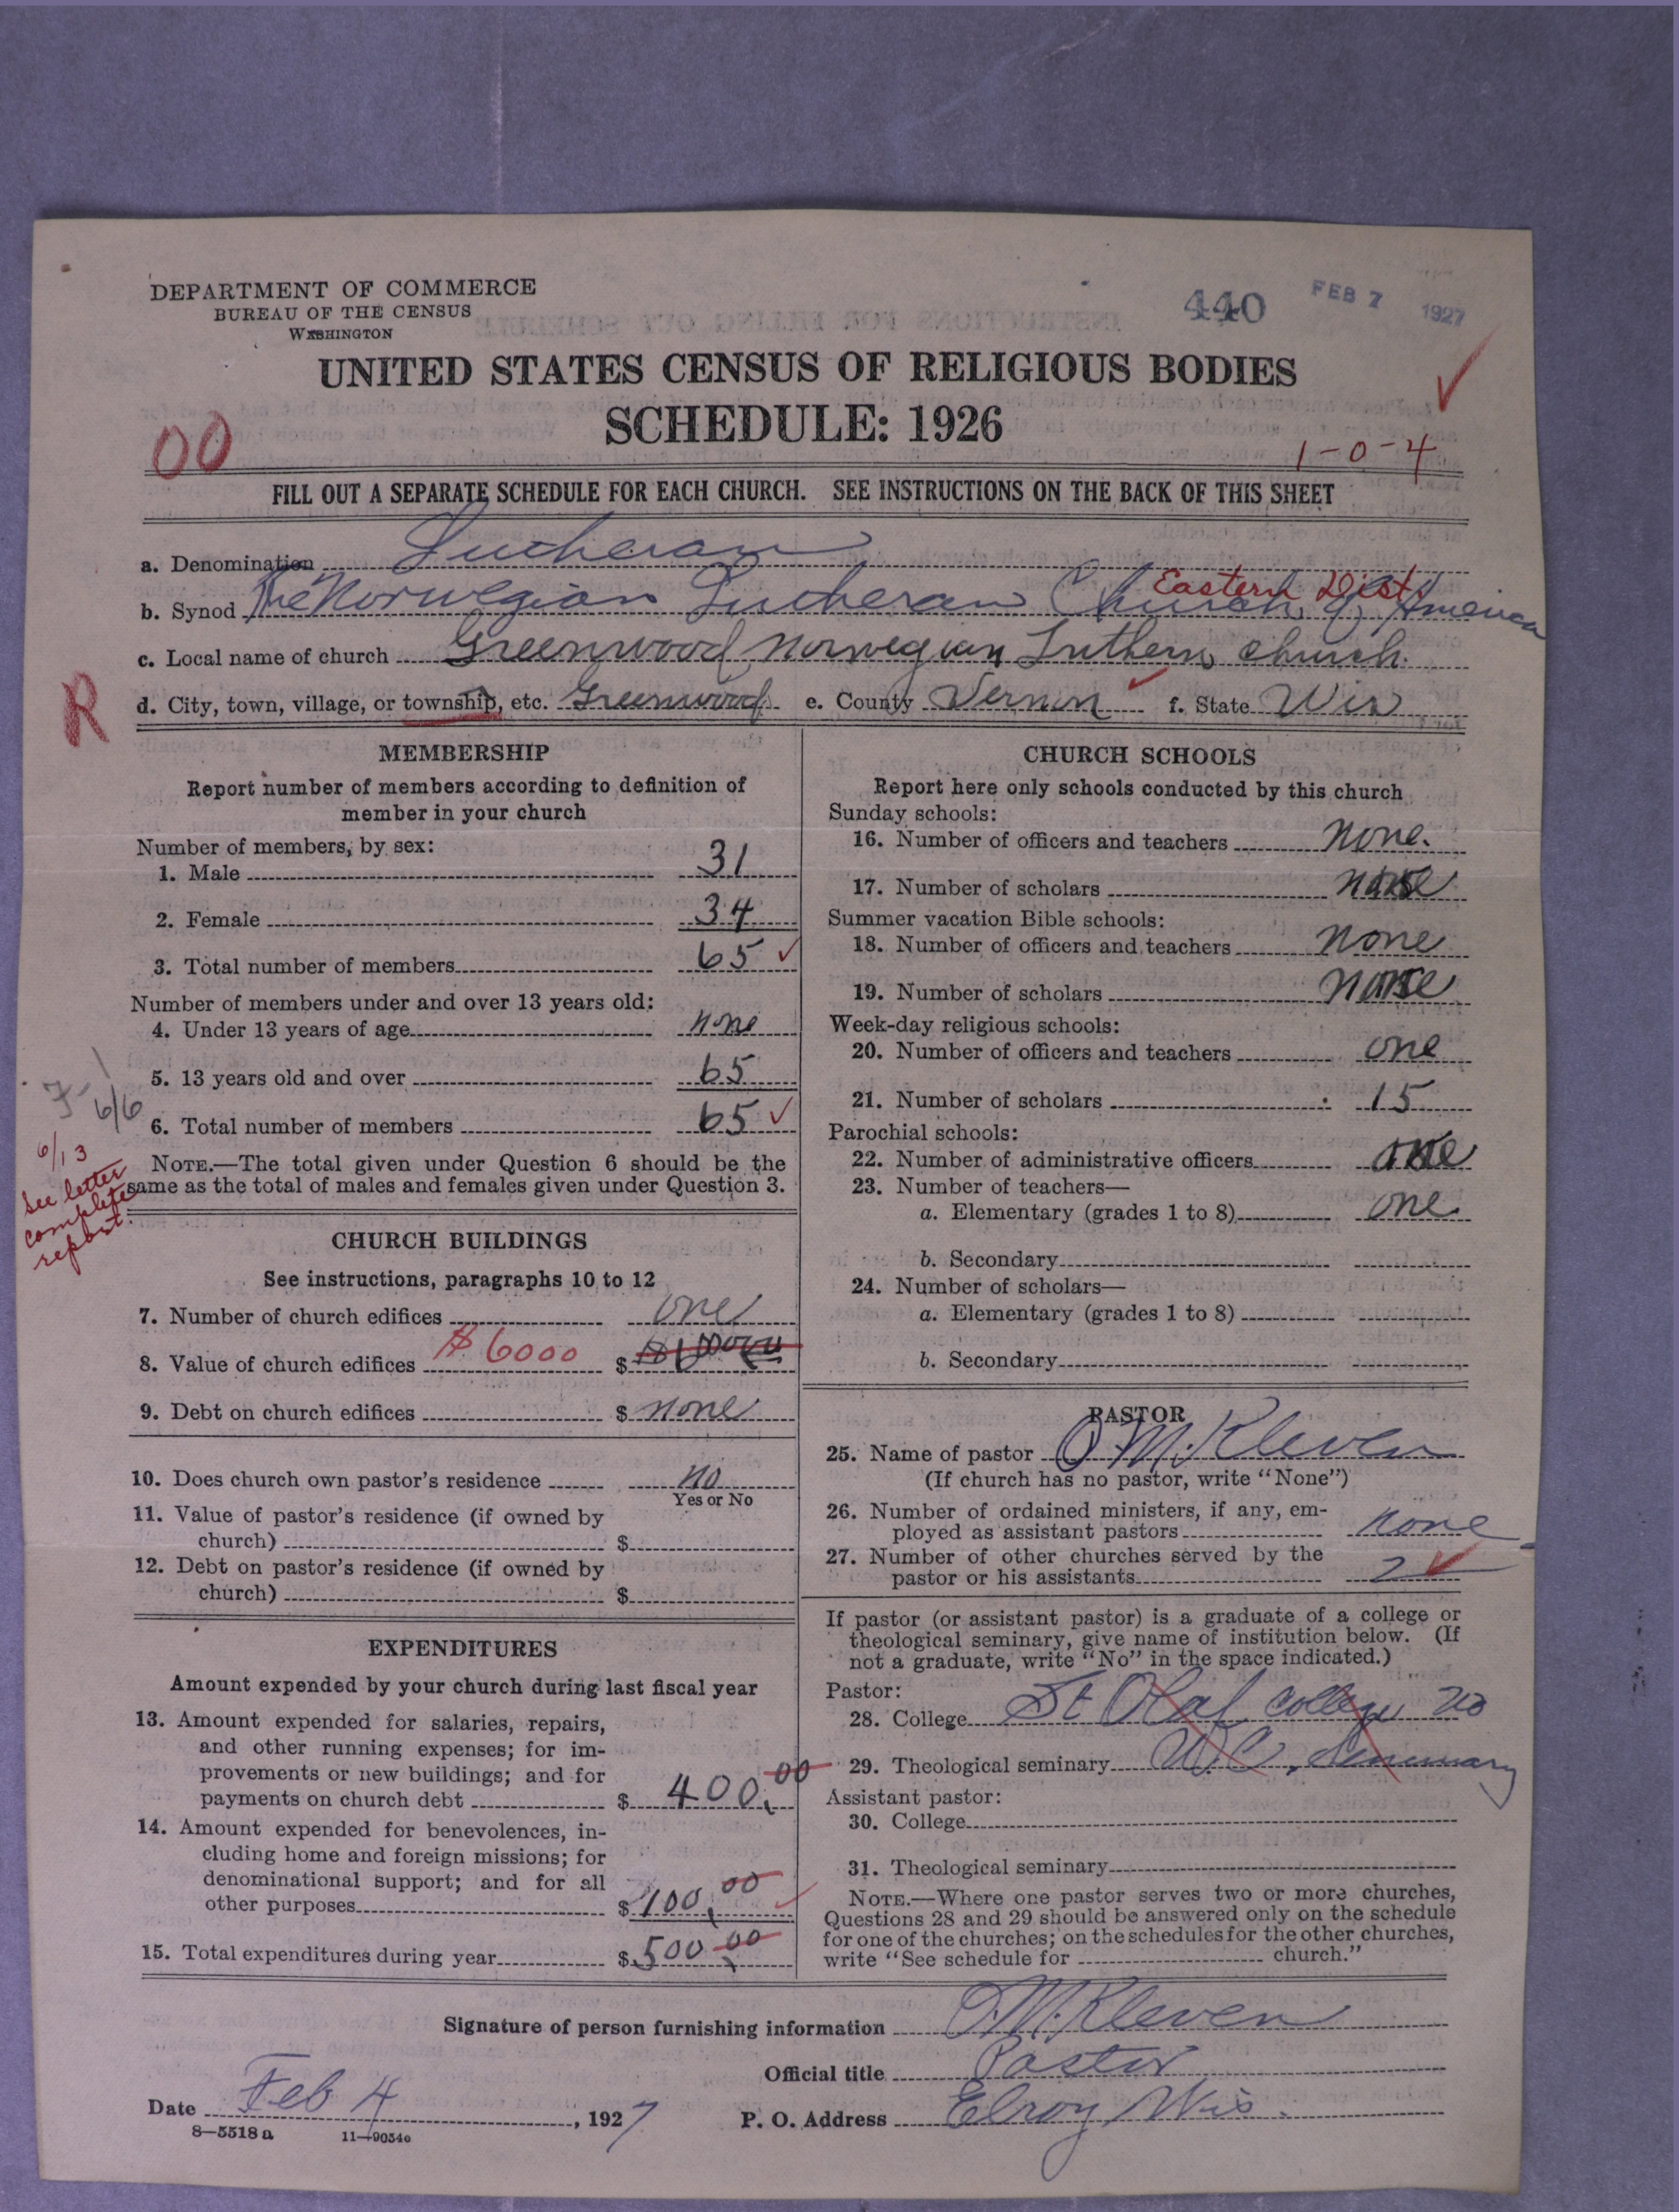 DEPARTMENT OF COMMERCE
BUREAU OF THE CENSUS
WASHINGTON
440 FEB 7 1927
UNITED STATES CENSUS OF RELIGIOUS BODIES
SCHEDULE: 1926
00
1-0-4
FILL OUT A SEPARATE SCHEDULE FOR EACH CHURCH. SEE INSTRUCTIONS ON THE BACK OF THIS SHEET
a. Denomination Lutheran
Eastern Dist.
b. Synod The Norwegian Lutheran Church of America
c. Local name of church Greenwood Norwegian Luthern church.
R
d. City, town, village, or township, etc. Greenwood e. County Vernon f. State Wis
MEMBERSHIP
Report number of members according to definition of
member in your church
Number of members, by sex:
1. Male 31
2. Female 34
3. Total number of members 65
Number of members under and over 13 years old:
4. Under 13 years of age none
5. 13 years old and over 65
6. Total number of members 65
6/6
6/13
see letter
complete
report.
NOTE.—The total given under Question 6 should be the
same as the total of males and females given under Question 3.
CHURCH BUILDINGS
See instructions, paragraphs 10 to 12
7. Number of church edifices one
8. Value of church edifices $6000 $
9. Debt on church edifices $ none
10. Does church own pastor's residence no
Yes or No
11. Value of pastor's residence (if owned by
church) $
12. Debt on pastor's residence (if owned by
church) $
EXPENDITURES
Amount expended by your church during last fiscal year
13. Amount expended for salaries, repairs,
and other running expenses; for im-
provements or new buildings; and for
payments on church debt $ 400.00
14. Amount expended for benevolences, in-
cluding home and foreign missions; for
denominational support; and for all
other purposes $ 100.00
15. Total expenditures during year $ 500.00
CHURCH SCHOOLS
Report here only schools conducted by this church
Sunday schools:
16. Number of officers and teachers none.
17. Number of scholars none
Summer vacation Bible schools:
18. Number of officers and teachers none
19. Number of scholars none
Week-day religious schools:
20. Number of officers and teachers one
21. Number of scholars 15
Parochial schools:
22. Number of administrative officers one
23. Number of teachers—
a. Elementary (grades 1 to 8) one
b. Secondary
24. Number of scholars—
a. Elementary (grades 1 to 8)
b. Secondary
PASTOR
25. Name of pastor O.M. Kleven
(If church has no pastor, write "None")
26. Number of ordained ministers, if any, em-
ployed as assistant pastors none
27. Number of other churches served by the
pastor or his assistants 2
If pastor (or assistant pastor) is a graduate of a college or
theological seminary, give name of institution below. (If
not a graduate, write "No" in the space indicated.)
Pastor:
28. College St Olaf College no
29. Theological seminary U.C. Seminary
Assistant pastor:
30. College
31. Theological seminary
NOTE.—Where one pastor serves two or more churches,
Questions 28 and 29 should be answered only on the schedule
for one of the churches; on the schedules for the other churches,
write "See schedule for church."
Signature of person furnishing information O.M. Kleven
Official title Pastor
Date Feb 4, 1927 P. O. Address Elroy Wis.
8—5518 a 11—9054e